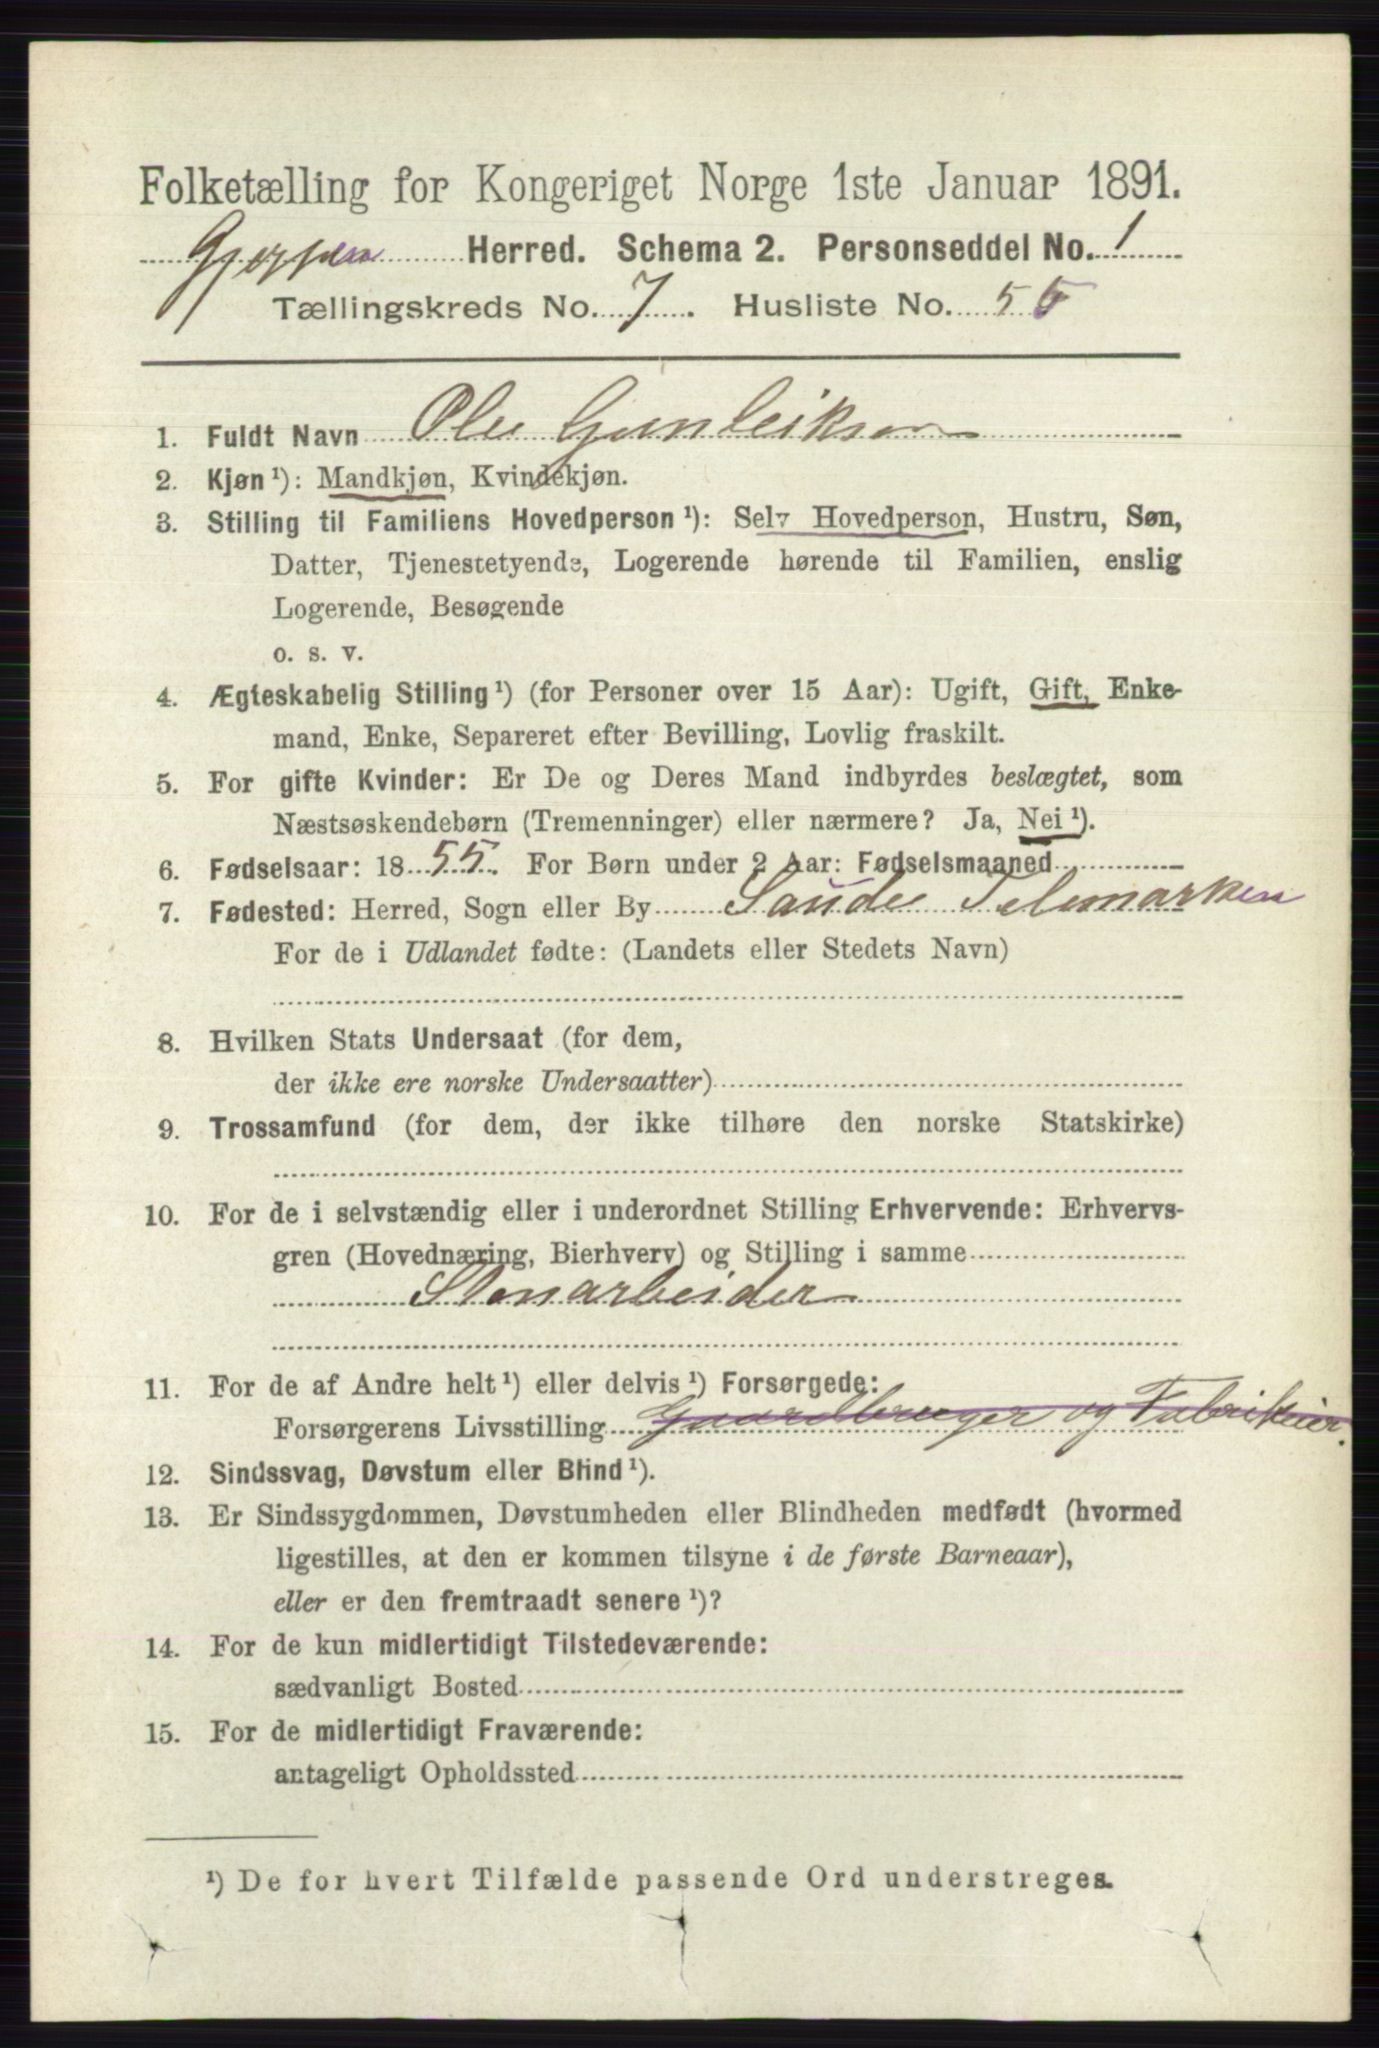 Folketælling for Kongeriget Norge 1ste Januar 1891.
Gjerpen Herred. Schema 2. Personseddel No. 1
Tællingskreds No. 7. Husliste No. 55
1. Fuldt Navn Ole Gunleiksen
2. Kjøn ¹): Mandkjøn, Kvindekjøn.
3. Stilling til Familiens Hovedperson ¹): Selv Hovedperson, Hustru, Søn,
Datter, Tjenestetyende, Logerende hørende til Familien, enslig
Logerende, Besøgende
o. s. v.
4. Ægteskabelig Stilling ¹) (for Personer over 15 Aar): Ugift, Gift, Enke-
mand, Enke, Separeret efter Bevilling, Lovlig fraskilt.
5. For gifte Kvinder: Er De og Deres Mand indbyrdes beslægtet, som
Næstsøskendebørn (Tremenninger) eller nærmere? Ja, Nei ¹).
6. Fødselsaar: 1855. For Børn under 2 Aar: Fødselsmaaned
7. Fødested: Herred, Sogn eller By Saude Telemarken
For de i Udlandet fødte: (Landets eller Stedets Navn)
8. Hvilken Stats Undersaat (for dem,
der ikke ere norske Undersaatter)
9. Trossamfund (for dem, der ikke tilhøre den norske Statskirke)
10. For de i selvstændig eller i underordnet Stilling Erhvervende: Erhvervs-
gren (Hovednæring, Bierhverv) og Stilling i samme
Stenarbeider
11. For de af Andre helt ¹) eller delvis ¹) Forsørgede:
Forsørgerens Livsstilling Gaardbruger og Fabrikeier.
12. Sindssvag, Døvstum eller Blind ¹).
13. Er Sindssygdommen, Døvstumheden eller Blindheden medfødt (hvormed
ligestilles, at den er kommen tilsyne i de første Barneaar),
eller er den fremtraadt senere ¹)?
14. For de kun midlertidigt Tilstedeværende:
sædvanligt Bosted
15. For de midlertidigt Fraværende:
antageligt Opholdssted
¹) De for hvert Tilfælde passende Ord understreges.